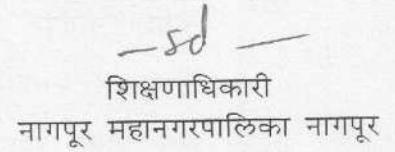 —sd—
शिक्षणाधिकारी
नागपूर महानगरपालिका नागपूर